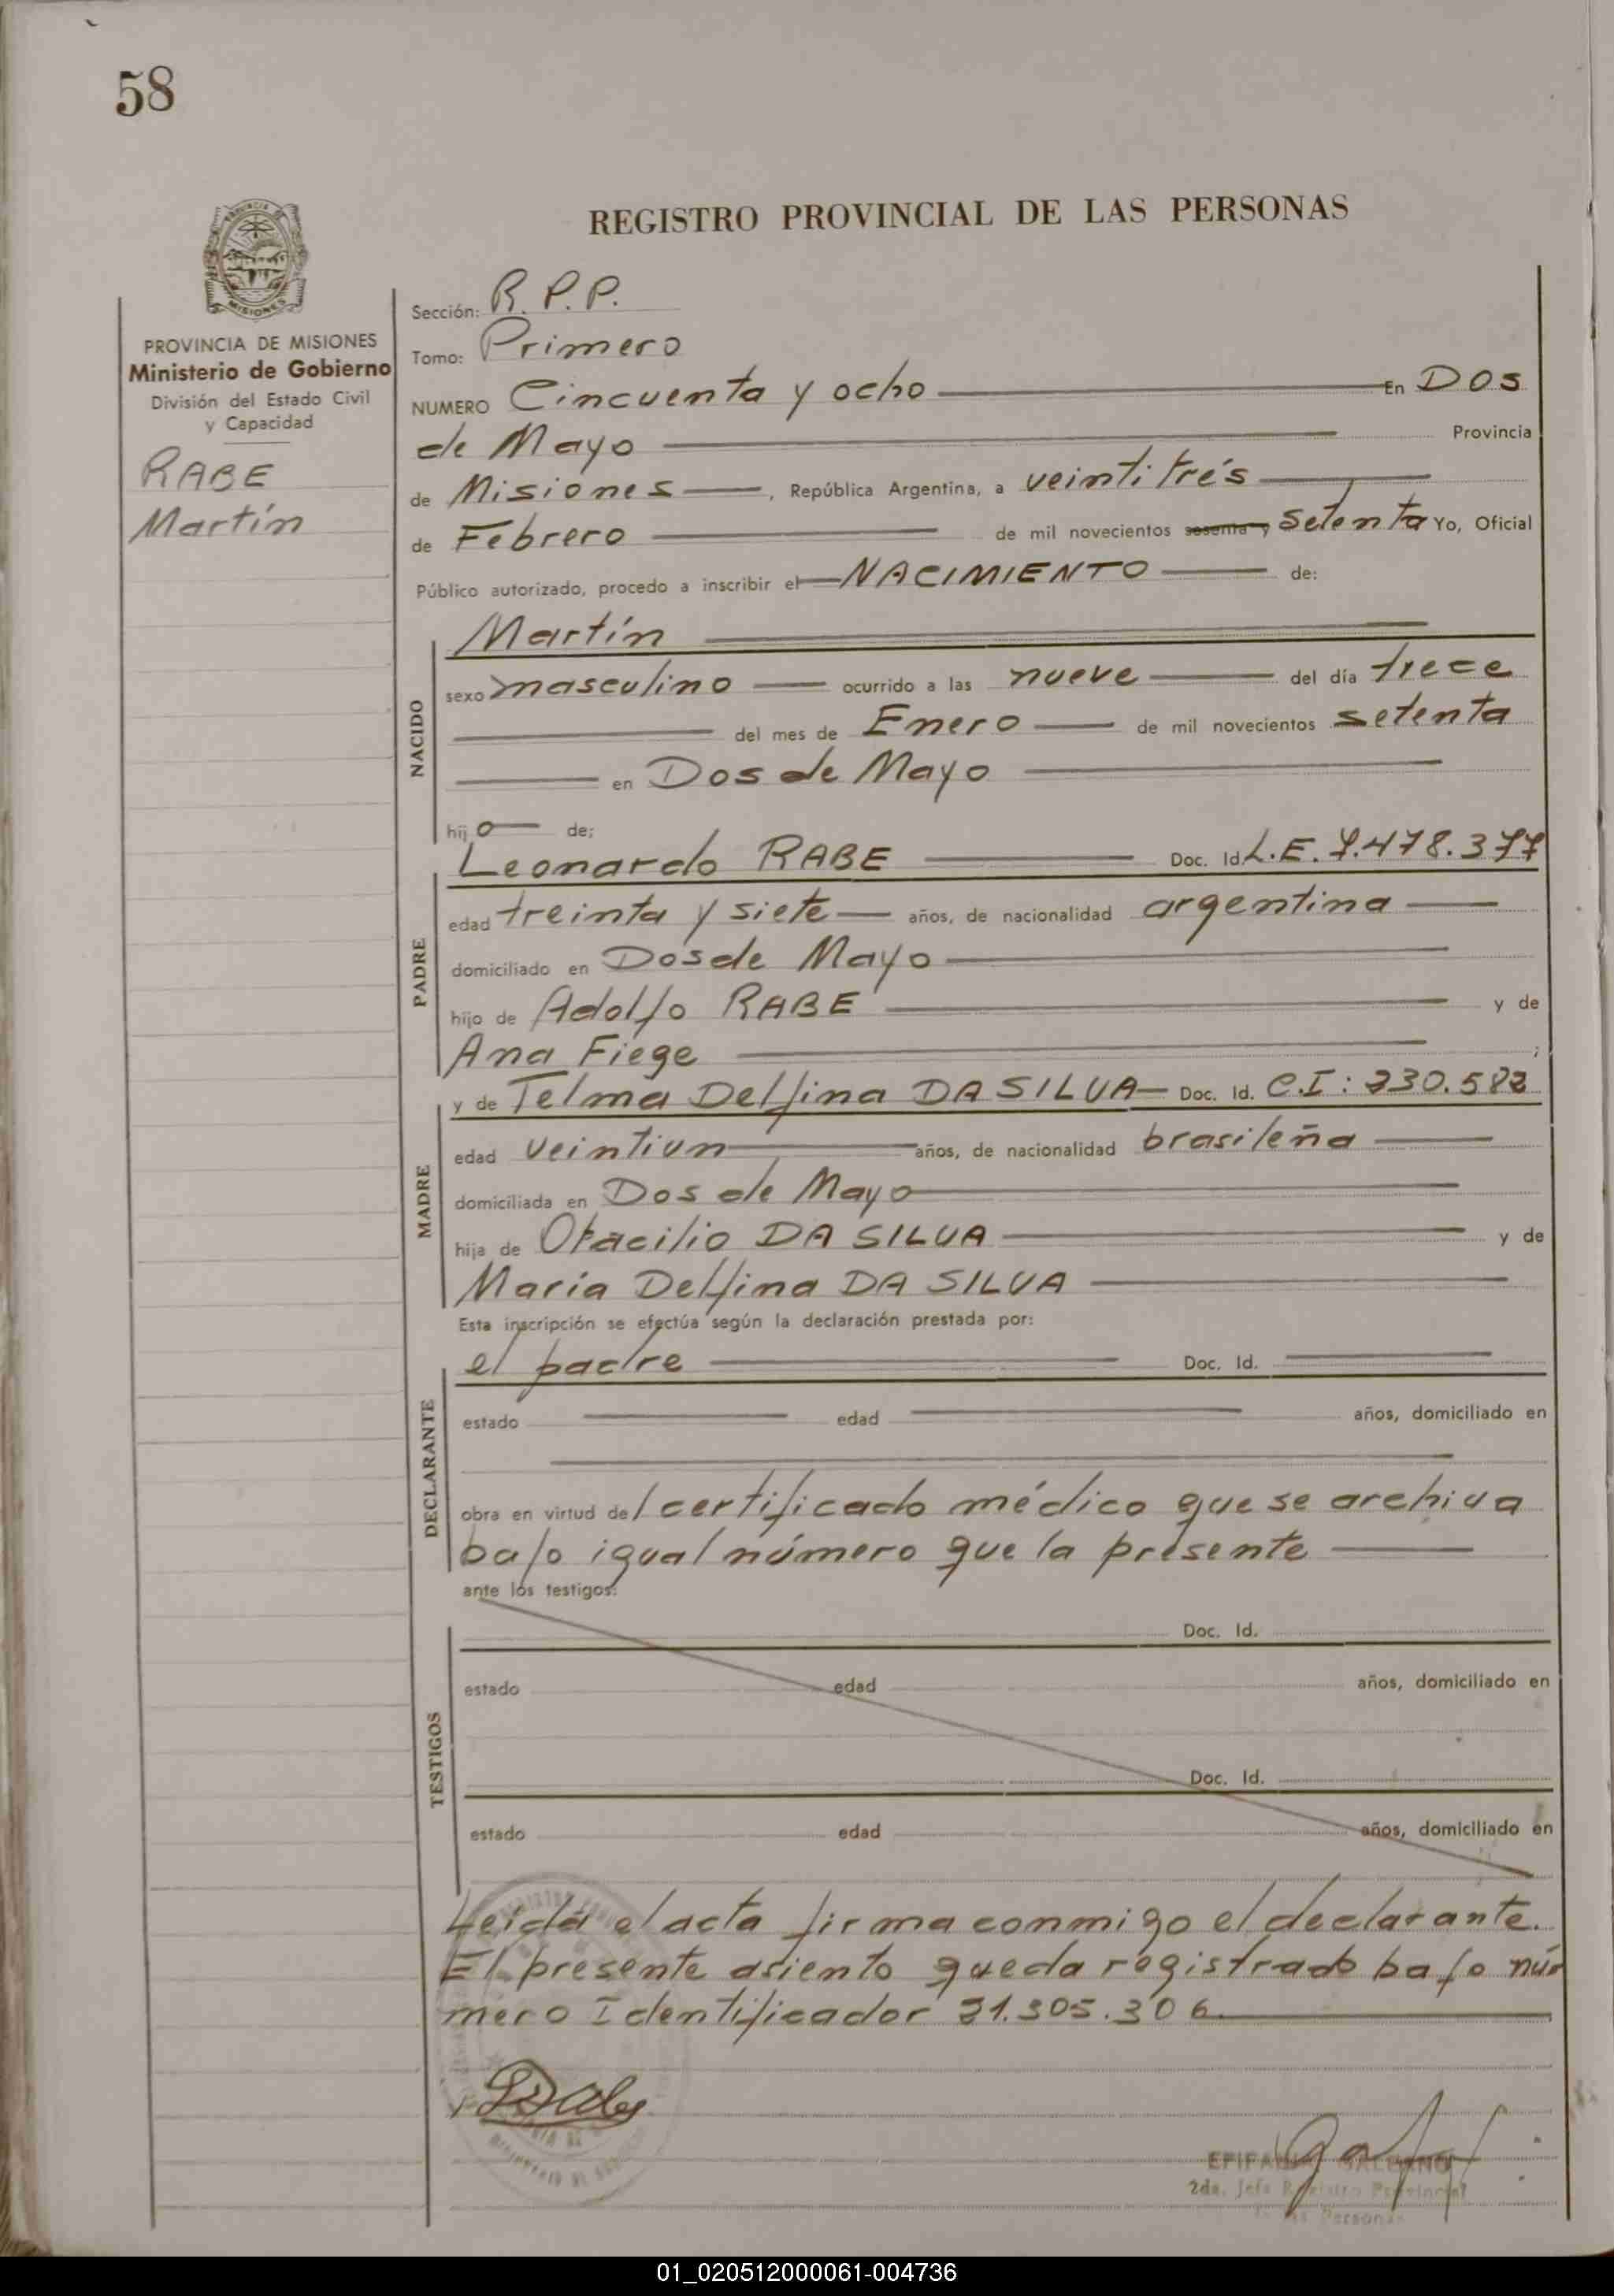 58
REGISTRO PROVINCIAL DE LAS PERSONAS
PROVINCIA DE MISIONES
Ministerio de Gobierno
División del Estado Civil
y Capacidad
RABE
Martín
Sección: R.P.P.
Tomo: Primero
NUMERO Cincuenta y ocho En Dos
de Mayo Provincia
de Misiones, República Argentina, a veintitrés
de Febrero de mil novecientos sesenta y setenta Yo, Oficial
Público autorizado, procedo a inscribir el NACIMIENTO de:
NACIDO
Martín
sexo masculino ocurrido a las nueve del día trece
del mes de Enero de mil novecientos setenta
en Dos de Mayo
hijo de;
PADRE
Leonardo RABE Doc. Id. L.E. 7.478.377
edad treinta y siete años, de nacionalidad argentina
domiciliado en Dos de Mayo
hijo de Adolfo RABE y de
Ana Fiege ;
MADRE
y de Telma Delfina DA SILVA Doc. Id. C.I: 330.582
edad veintiun años, de nacionalidad brasileña
domiciliada en Dos de Mayo
hija de Otacilio DA SILVA y de
María Delfina DA SILVA
Esta inscripción se efectúa según la declaración prestada por:
DECLARANTE
el padre Doc. Id.
estado edad años, domiciliado en
obra en virtud del certificado médico que se archiva
bajo igual número que la presente
ante los testigos:
TESTIGOS
Doc. Id.
estado edad años, domiciliado en
Doc. Id.
estado edad años, domiciliado en
Leída el acta firma conmigo el declarante.
El presente asiento queda registrado bajo nú-
mero Identificador 21.305.306
2da. Jefe Registro Provincial
de las Personas
01_020512000061-004736